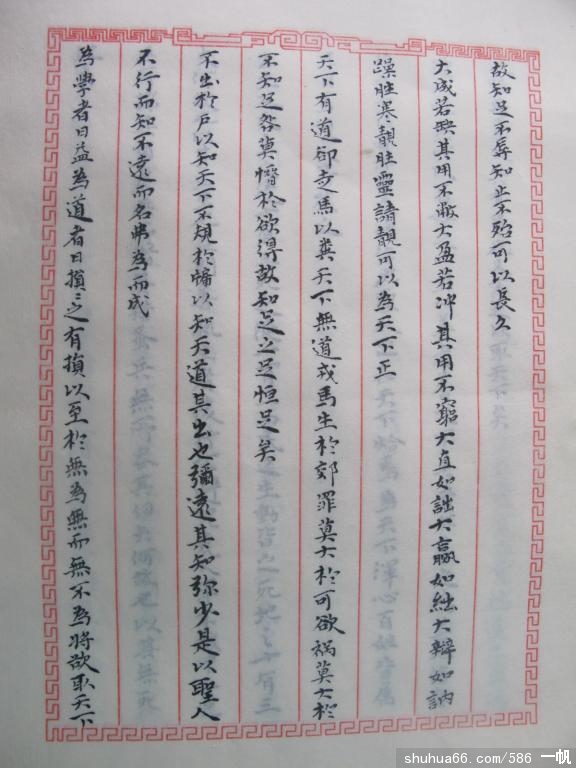 故知足不辱知止不殆可以長久
大成若缺其用不敝大盈若冲其用不窮大直如詘大贏如絀大辯如訥
躁胜寒靚胜靈請靚可以為天下正
天下有道卻走馬以糞天下無道戎馬生於郊罪莫大於可欲禍莫大於
不知足咎莫憯於欲得故知足之足恒足矣
不出於戶以知天下不規於牖以知天道其出也彌遠其知弥少是以聖人
不行而知不遠而名弗為而成
為學者日益為道者日損損之有損以至於無為無而無不為將欲取天下
shuhua66.com/586 一帆